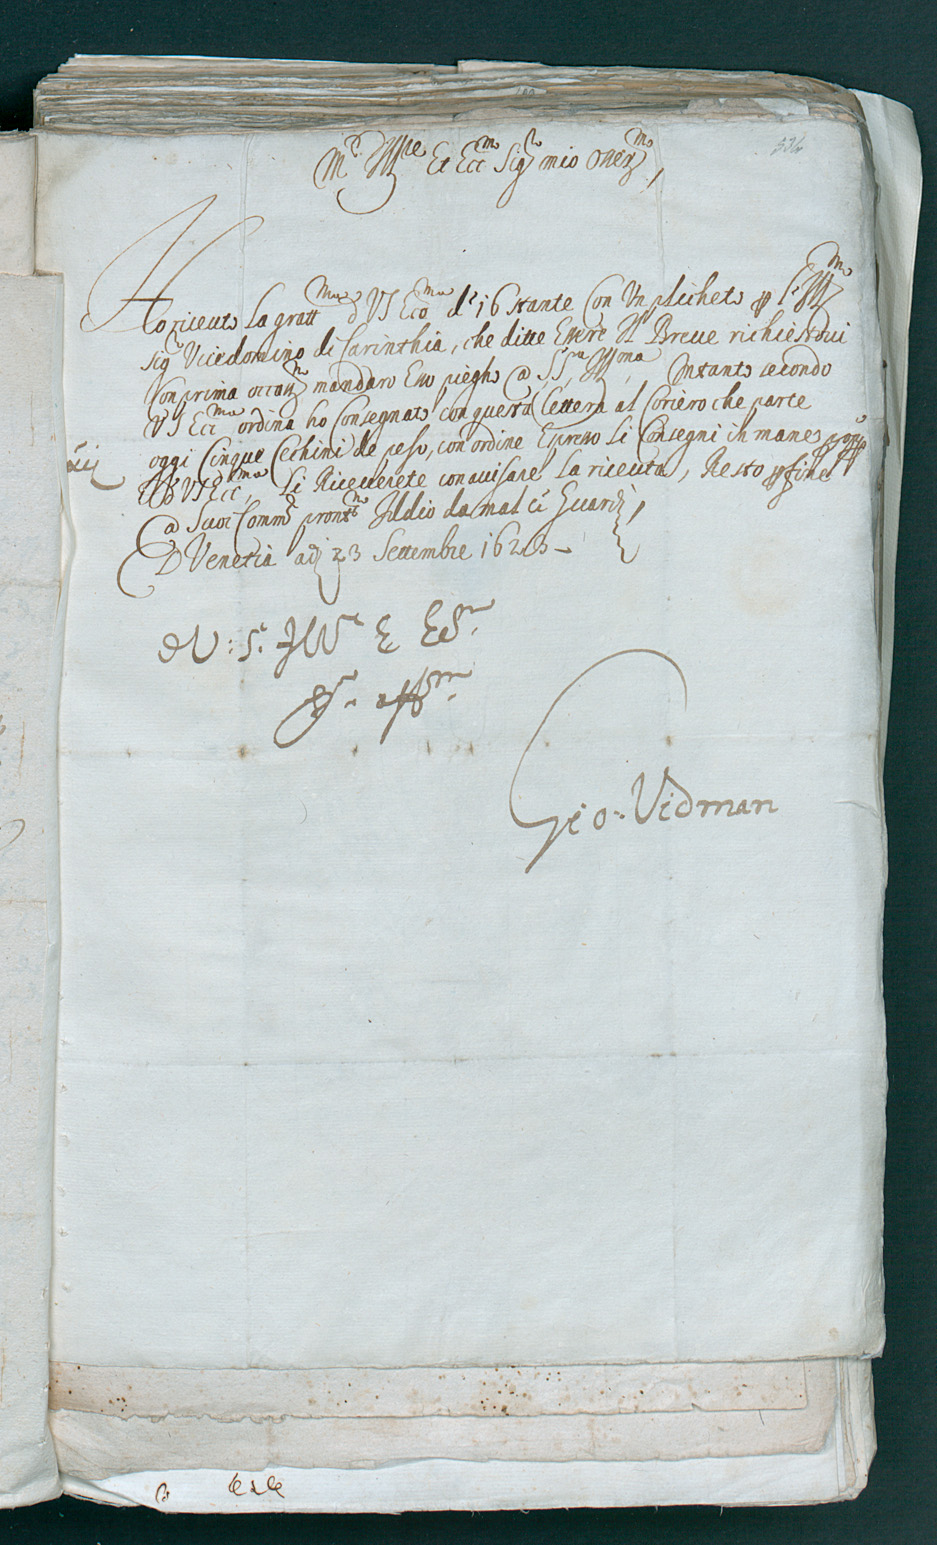 M.r Ill.re Et Ecc.mo Sig.r mio Oss.mo
336
Ho riceuto la gratt.ma d VS Ecc.ma de 16 stante Con Un plicheto p l'Ill.mo
Sig.r Vicedomino di Carinthia, che ditte Essere Il Breue richiestoui
Con prima occas.ne mandaro Esso piegho a SS.ria Ill.ma Intanto secondo
VS Ecc.ma ordina ho Consegnato con questa lettera al Coriero che parte
oggi Cinque Cechini de peso, con ordine Espresso li Consegni in mane
VS Ecc.ma, li Riceuerete con auisare la riceuta, Resto p fine
a Suoi Comm.di pront.mo Iddio da mal ci Guardi,
D Venetia adj 23 Settembre 162
D V: S. Ill.e E Ec.ma
Se.r aff.mo
Gio: Vidman